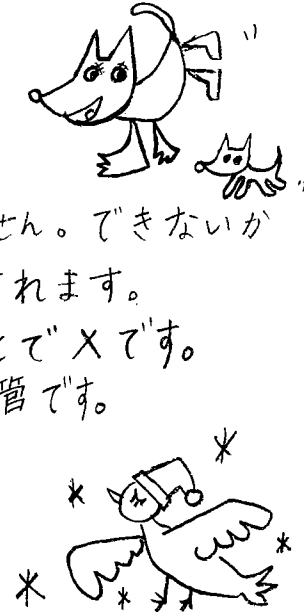 せん。できないか
れます。
でメです。
管です。